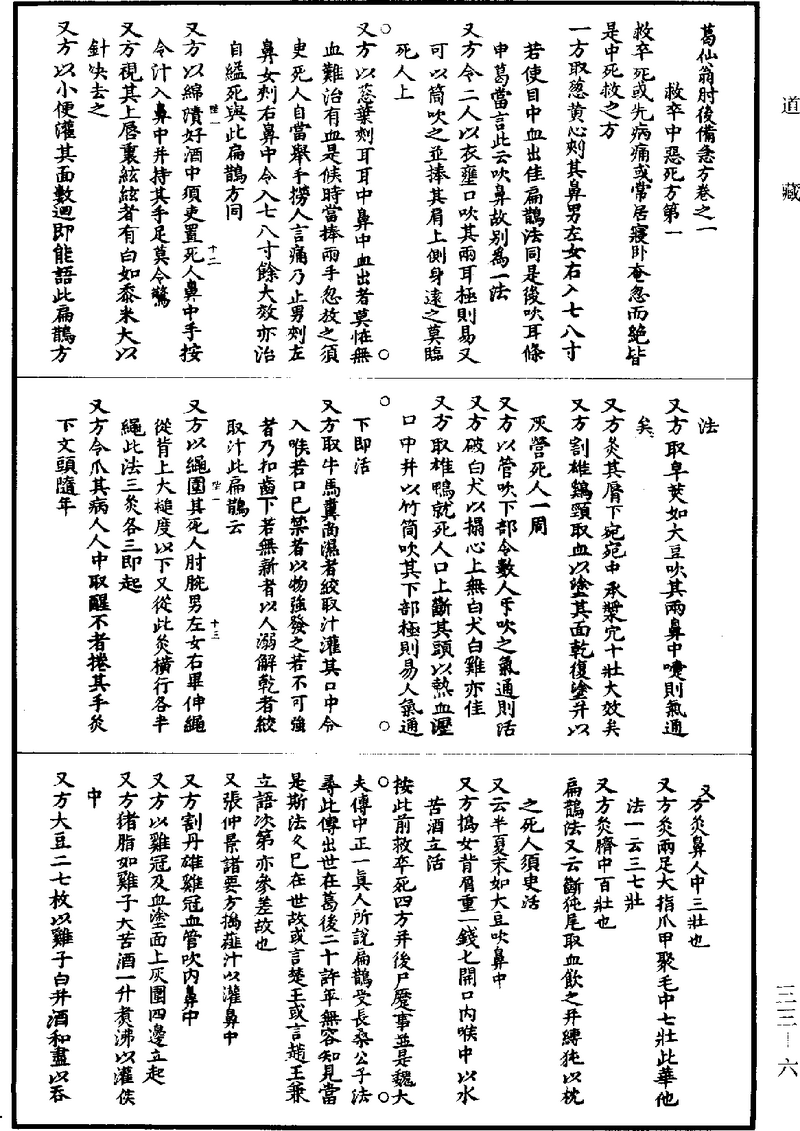 道藏
葛仙翁肘後備急方卷之一
救卒中惡死方第一
救卒死或先病痛或常居寢卧奄忽而絶皆
是中死救之方
一方取葱黄心刾其鼻男左女右入七八寸
若使目中血出佳扁鵲法同是後吹耳條
中葛當言此云吹鼻故别為一法
又方令二人以衣壅口吹其兩耳極則易又
可以筒吹之並捧其肩上側身遠之莫臨
死人上
又方以葱葉刾耳耳中鼻中血出者莫怪無
血難治有血是候時當捧兩手忽放之須
㬰死人自當舉手撈人言痛乃止男刾左
鼻女刾右鼻中令入七八寸餘大效亦治
自縊死與此扁鵲方同
又方以綿漬好酒中須㬰置死人鼻中手按
令汁入鼻中并持其手足莫令驚
又方視其上唇裏絃絃者有白如黍米大以
針决去之
又方以小便灌其面數迴即能語此扁鵲方
法
又方取皁莢如大豆吹其兩鼻中嚏則氣通
矣
又方灸其脣下宛宛中承漿穴十壯大效矣
又方割雄鷄頸取血以塗其面乾復塗并以
灰營死人一周
又方以管吹下部令數人手吹之氣通則活
又方破白犬以搨心上無白犬白雞亦佳
又方取雄鴨就死人口上斷其頭以熱血瀝
口中并以竹筒吹其下部極則易人氣通
下即活
又方取牛馬糞尚濕者絞取汁灌其口中令
入喉若口已禁者以物強發之若不可強
者乃扣齒下若無新者以人溺解乾者絞
取汁此扁鵲云
又方以繩圍其死人肘腕男左女右畢伸繩
從背上大槌度以下又從此灸橫行各半
繩此法三灸各三即起
又方令爪其病人人中取醒不者捲其手灸
下文頭隨年
又方灸鼻人中三壯也
又方灸兩足大指爪甲聚毛中七壯此華他
法一云三七壯
又方灸臍中百壯也
扁鵲法又云斷㹠尾取血飲之并縛㹠以枕
之死人須㬰活
又云半夏末如大豆吹鼻中
又方搗女青屑重一錢匕開口内喉中以水
苦酒立活
按此前救卒死四方并後尸蹷事並是魏大
夫傳中正一真人所說扁鵲受長桑公子法
尋此傳出世在葛後二十許年無容知見當
是斯法久已在世故或言楚王或言趙王兼
立語次第亦參差故也
又張仲景諸要方搗薤汁以灌鼻中
又方割丹雄雞冠血管吹内鼻中
又方以雞冠及血塗面上灰圍四邊立起
又方猪脂如雞子大苦酒一升煮沸以灌喉
中
又方大豆二七枚以雞子白并酒和盡以吞
三三-六